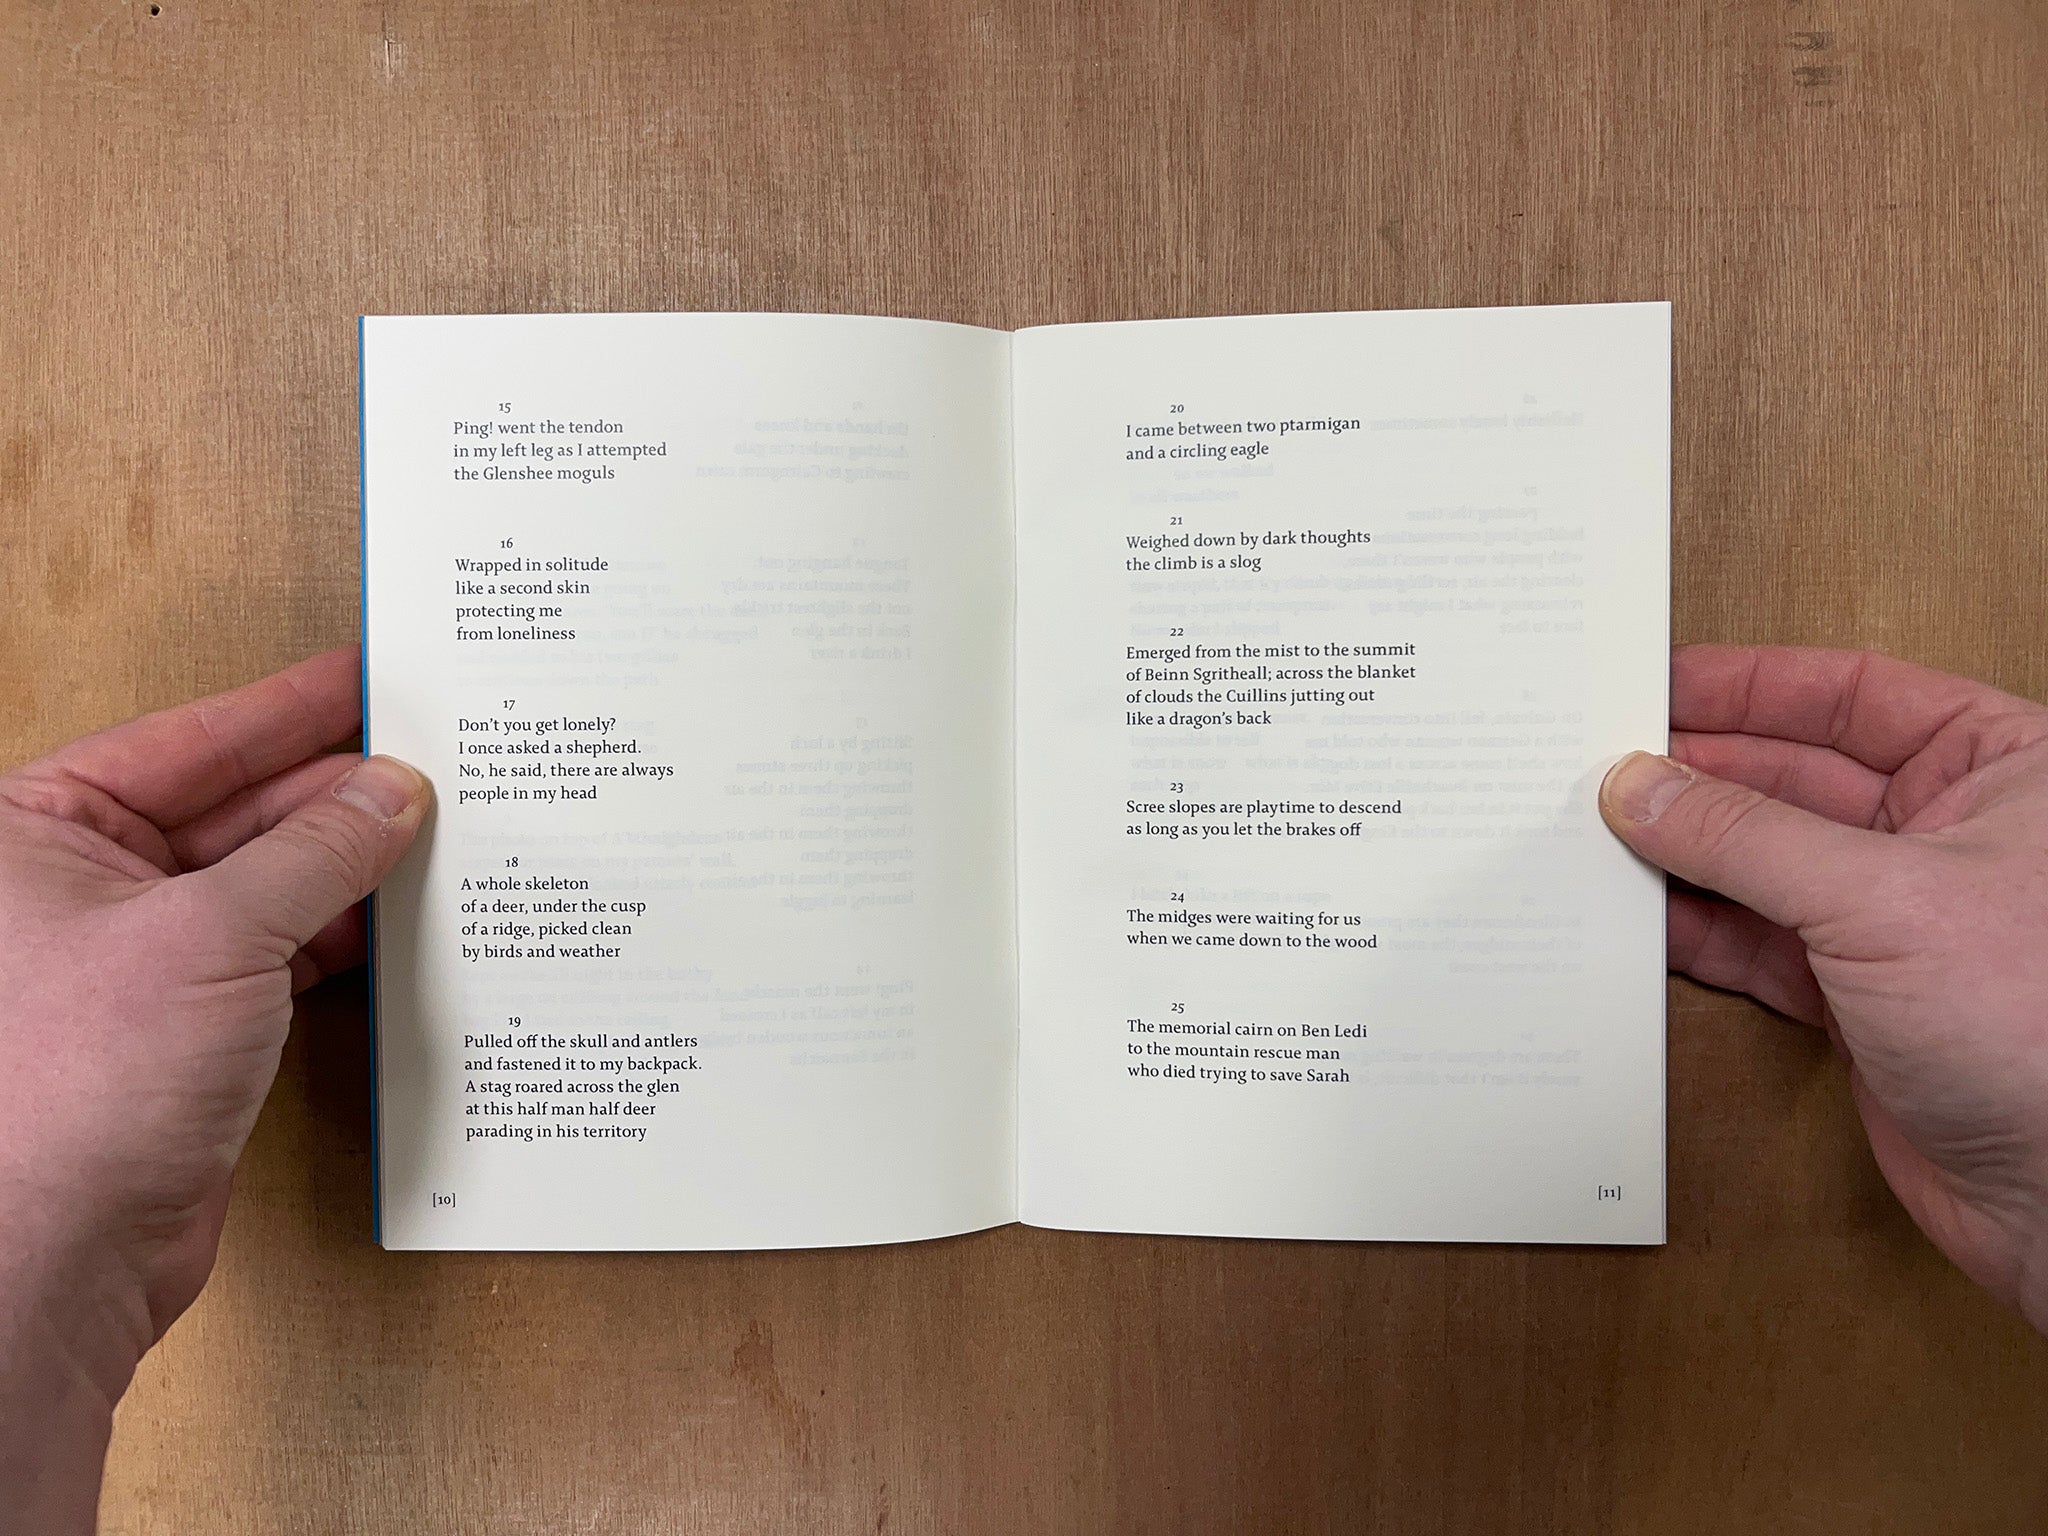 15
Ping! went the tendon
in my left leg as I attempted
the Glenshee moguls
16
Wrapped in solitude
like a second skin
protecting me
from loneliness
17
Don't you get lonely?
I once asked a shepherd.
No, he said, there are always
people in my head
18
A whole skeleton
of a deer, under the cusp
of a ridge, picked clean
by birds and weather
19
Pulled off the skull and antlers
and fastened it to my backpack.
A stag roared across the glen
at this half man half deer
parading in his territory
[10]
20
I came between two ptarmigan
and a circling eagle
21
Weighed down by dark thoughts
the climb is a slog
22
Emerged from the mist to the summit
of Beinn Sgritheall; across the blanket
of clouds the Cuillins jutting out
like a dragon's back
23
Scree slopes are playtime to descend
as long as you let the brakes off
24
The midges were waiting for us
when we came down to the wood
25
The memorial cairn on Ben Ledi
to the mountain rescue man
who died trying to save Sarah
[11]